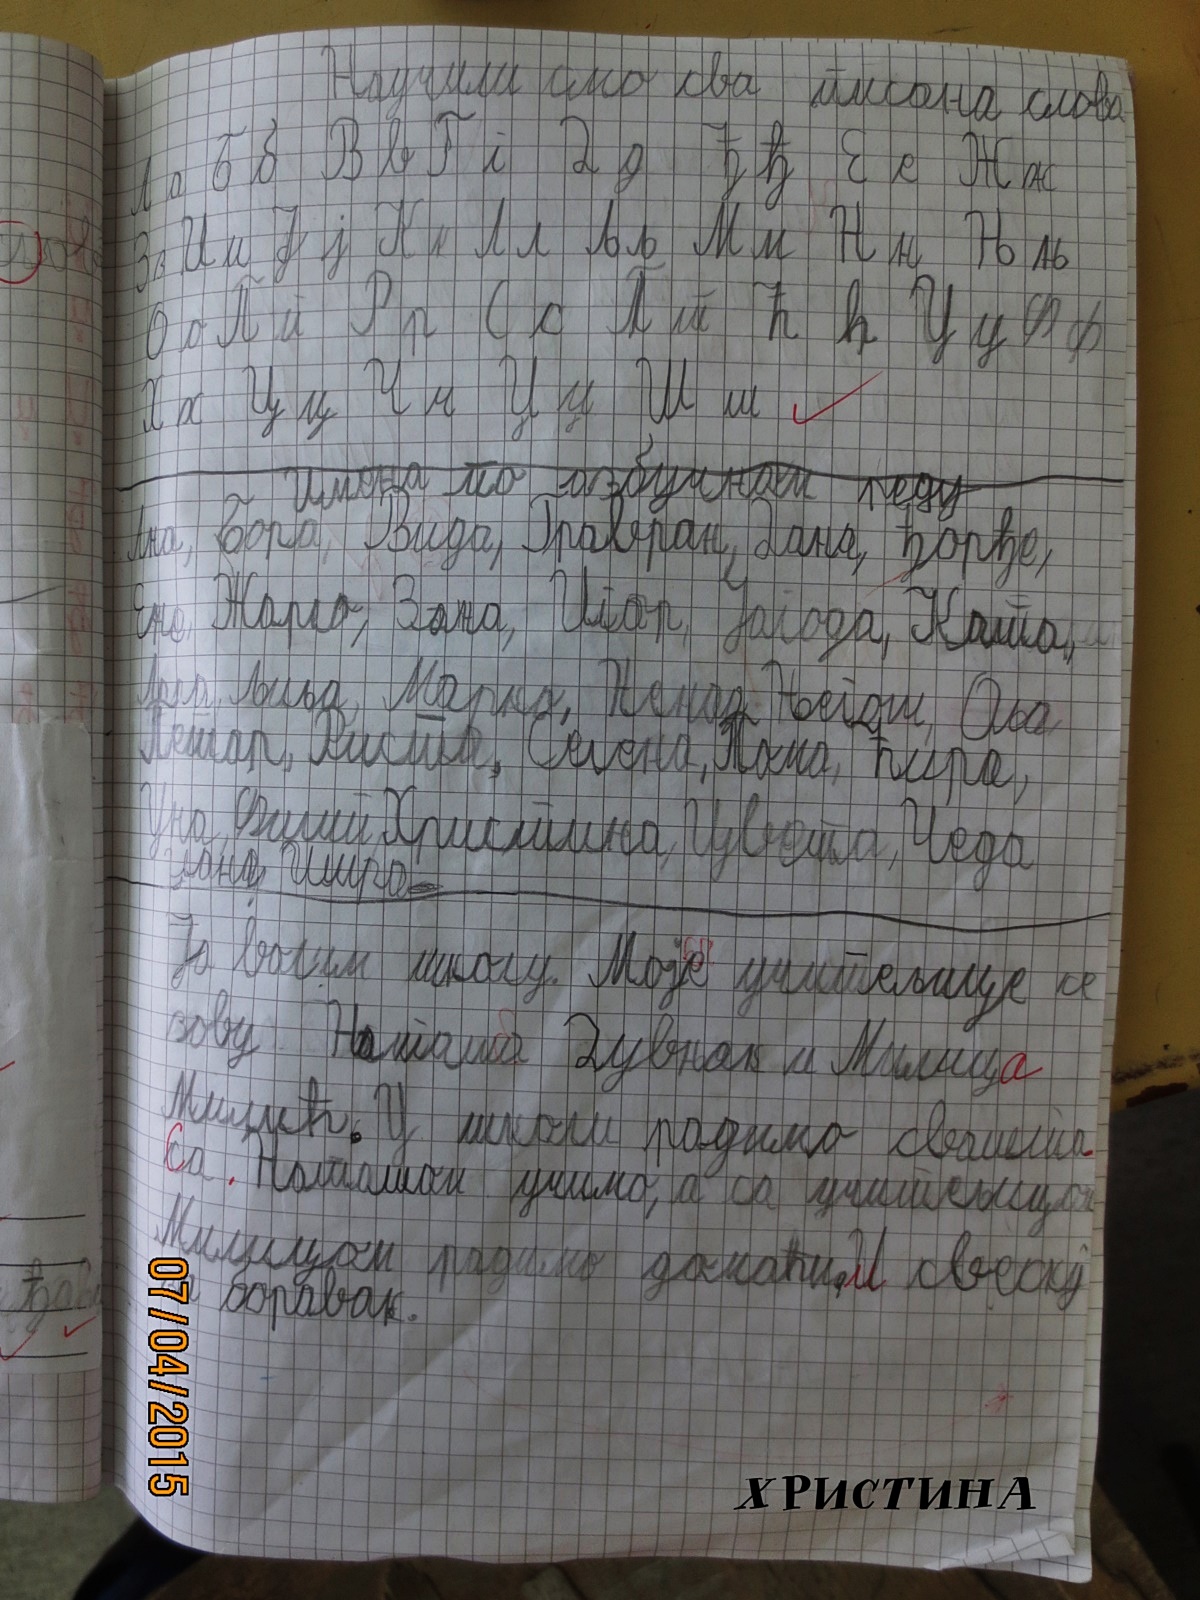 Научили смо сва писана слова
А а Б б В в Г г Д д Ђ ђ Е е Ж ж
З з И и Ј ј К к Л л Љ љ М м Н н Њ њ
О о П п Р р С с Т т Ћ ћ У у Ф ф
Х х Ц ц Ч ч Џ џ Ш ш
Имена по азбучном реду
Ана, Бора, Вида, Гравран, Дана, Ђорђе,
Жарко, Зана, Игор, Јагода, Каћа,
Љиља, Марко, Ненад, Његош, Ова
Петар, Ристa, Селена, Тома, Ћира,
Уна, Филип, Христина, Цвета, Чеда
Џана, Шира
Ја волим школу. Моје учитељице се
зову Наташа Дувњак и Милица
Милић. У школи радимо свашта.
Са Наташом учимо, а са учитељицом
Милицом радимо домаћи И свеску
за боравак.
07/04/2015
ХРИСТИНА